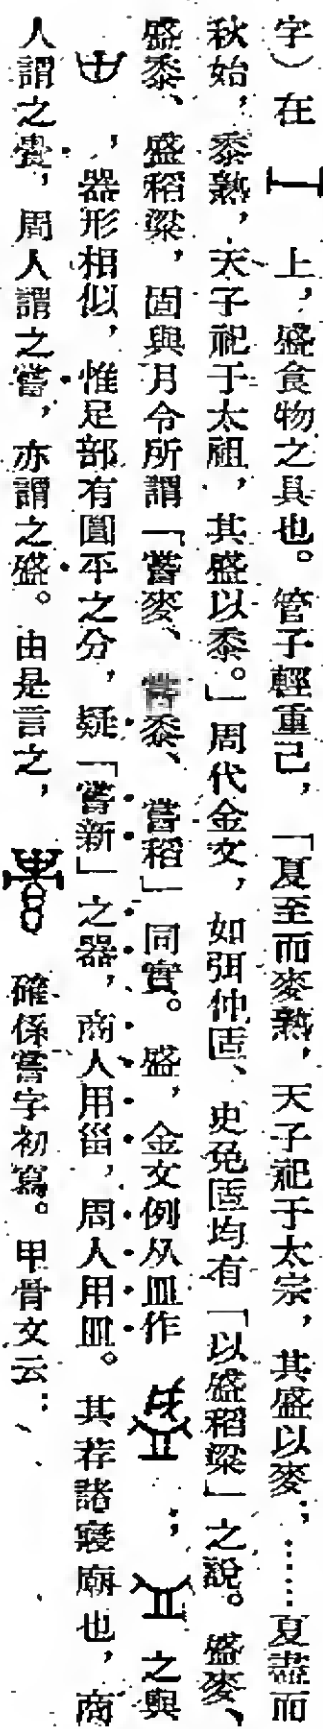 字）在 上，盛食物之具也。管子輕重己，「夏至而麥熟，天子祀于太宗，其盛以麥；……夏盡而
秋始，黍熟，天子祀于太祖，其盛以黍。」周代金文，如弭仲𠤳、史免𠤳均有「以盛稻粱」之說。盛麥、
盛黍、盛稻粱，固與月令所謂「嘗麥、嘗黍、嘗稻」同實。盛，金文例从皿作 ； 之與
，器形相似，惟足部有圓平之分，疑「嘗新」之器，商人用甾，周人用皿。其荐諸寢廟也，商
人謂之 ，周人謂之嘗，亦謂之盛。由是言之， 確係嘗字初寫。甲骨文云：